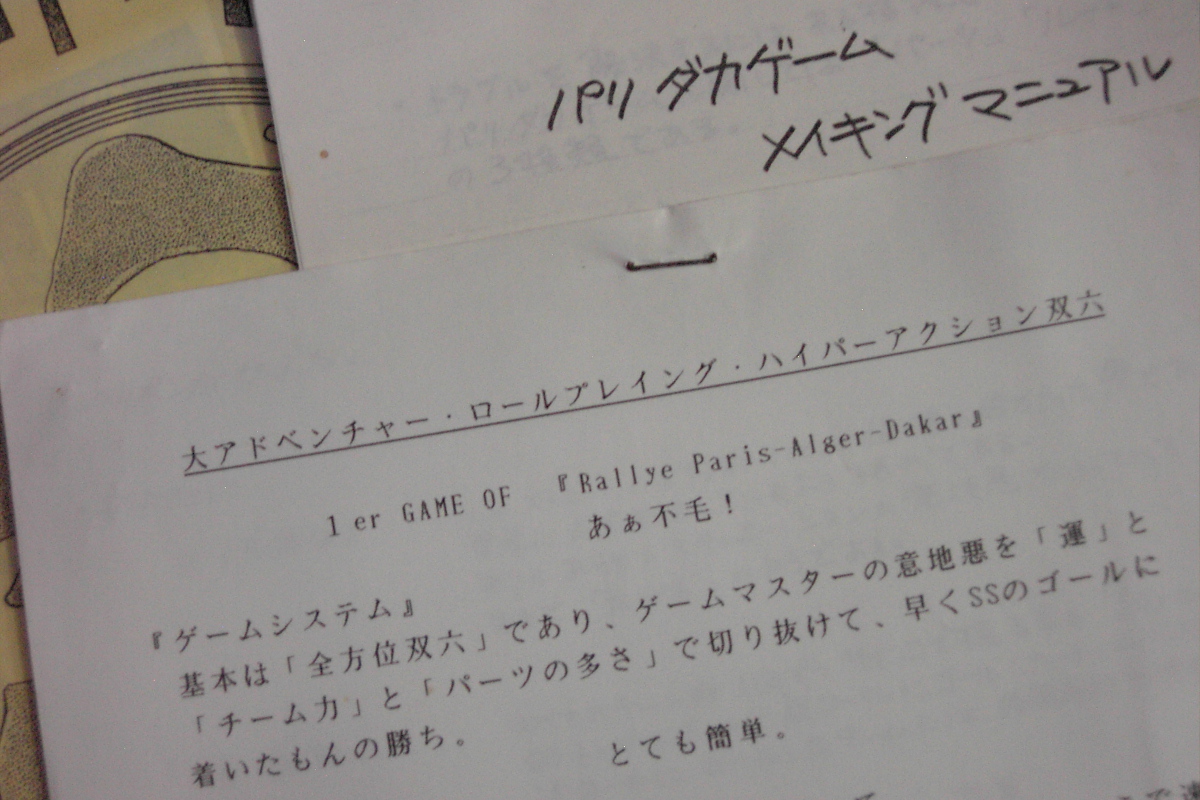 パリダカゲーム
メイキングマニュアル
大アドベンチャー・ロールプレイング・ハイパーアクション双六
1er GAME OF 『Rallye Paris-Alger-Dakar』
あぁ不毛！
『ゲームシステム』
基本は「全方位双六」であり、ゲームマスターの意地悪を「運」と
「チーム力」と「パーツの多さ」で切り抜けて、早くSSのゴールに
着いたもんの勝ち。 とても簡単。